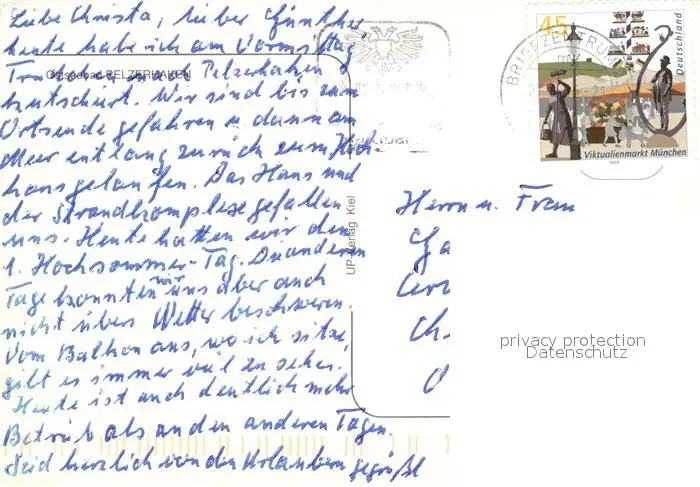 Liebe Christa, lieber Günther,
heute habe ich am Vormittag
nach Pelzerhaken
Ostseebad PELZERHAKEN
kutschiert. Wir sind bis zum
Ortsende gefahren u. dann am
Meer entlang zurück zum Hoch-
haus gelaufen. Das Haus und
der Strandkomplex gefallen
uns. Heute hatten wir den
1. Hochsommer-Tag. Die anderen
Tage konnten wir uns aber auch
nicht übers Wetter beschweren.
Vom Balkon aus, wo ich sitze,
gibt es immer viel zu sehen.
Heute ist auch deutlich mehr
Betrieb als an den anderen Tagen.
Seid herzlich von den Urlaubern gegrüßt
UP-Verlag Kiel
BRIEFZENTRUM
45
Deutschland
Viktualienmarkt München
Herrn u. Frau
privacy protection
Datenschutz